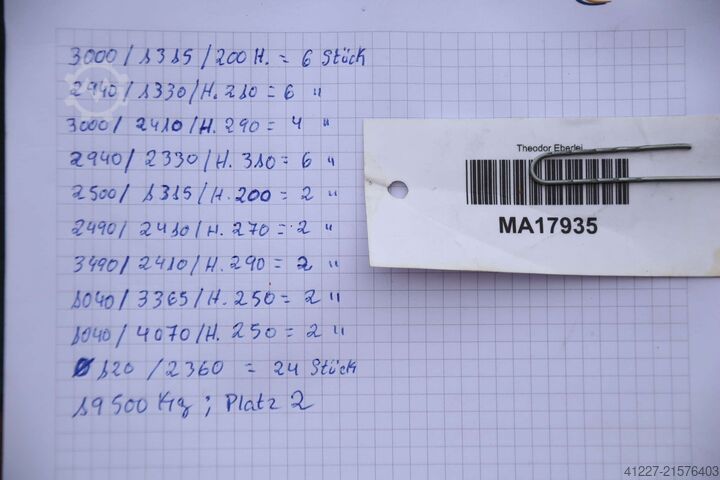 3000 / 1315 / 200 H. = 6 Stück
2940 / 1330 / H. 210 = 6 "
3000 / 2410 / H. 290 = 4 "
2940 / 2330 / H. 310 = 6 "
2500 / 1315 / H. 200 = 2 "
2490 / 2410 / H. 270 = 2 "
3490 / 2410 / H. 290 = 2 "
1040 / 3365 / H. 250 = 2 "
1040 / 4070 / H. 250 = 2 "
Ø 120 / 2360 = 24 Stück
19500 Kg ; Platz 2
Theodor Eberlei
MA17935
41227-21576403